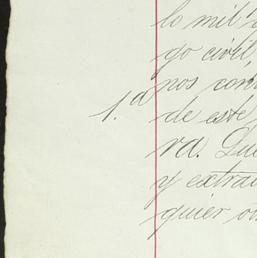 lo mil
go civil,
nos con
1.ª
de este
ra. Que
y extra
quier o